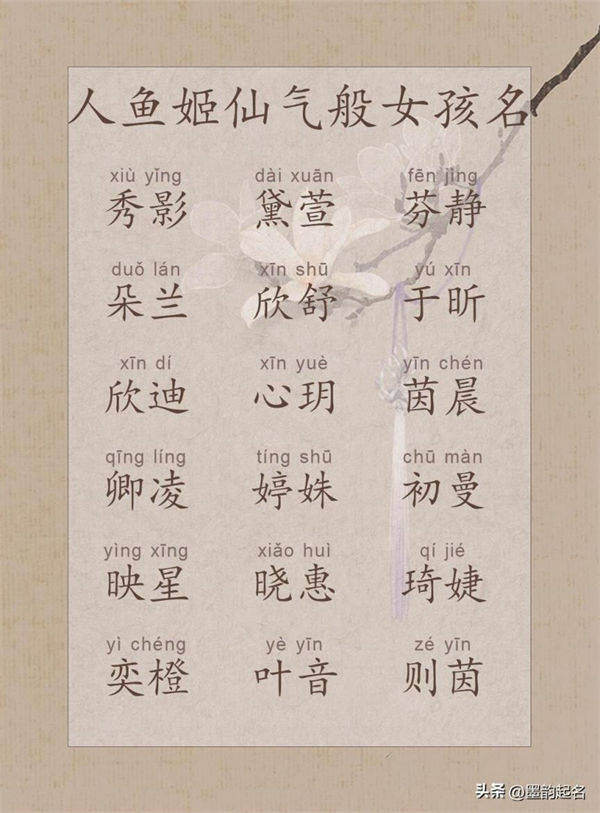 人鱼姬仙气般女孩名
xiù yǐng dài xuān fēn jìng
秀影 黛萱 芬静
duǒ lán xīn shū yú xīn
朵兰 欣舒 于昕
xīn dí xīn yuè yīn chén
欣迪 心玥 茵晨
qīng líng tíng shū chū màn
卿凌 婷姝 初曼
yìng xīng xiǎo huì qí jié
映星 晓惠 琦婕
yì chéng yè yīn zé yīn
奕橙 叶音 则茵
头条 @墨韵起名